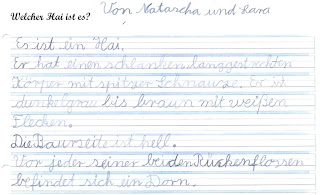 Welcher Hai ist es?
Von Natascha und Lara
Es ist ein Hai.
Er hat einen schlanken langgestreckten
Körper mit spitzer Schnauze. Er ist
dunkelgrau bis braun mit weißen
Flecken.
Die Baurseite ist hell.
Vor jeder seiner beiden Rückenflossen
befindet sich ein Dorn.